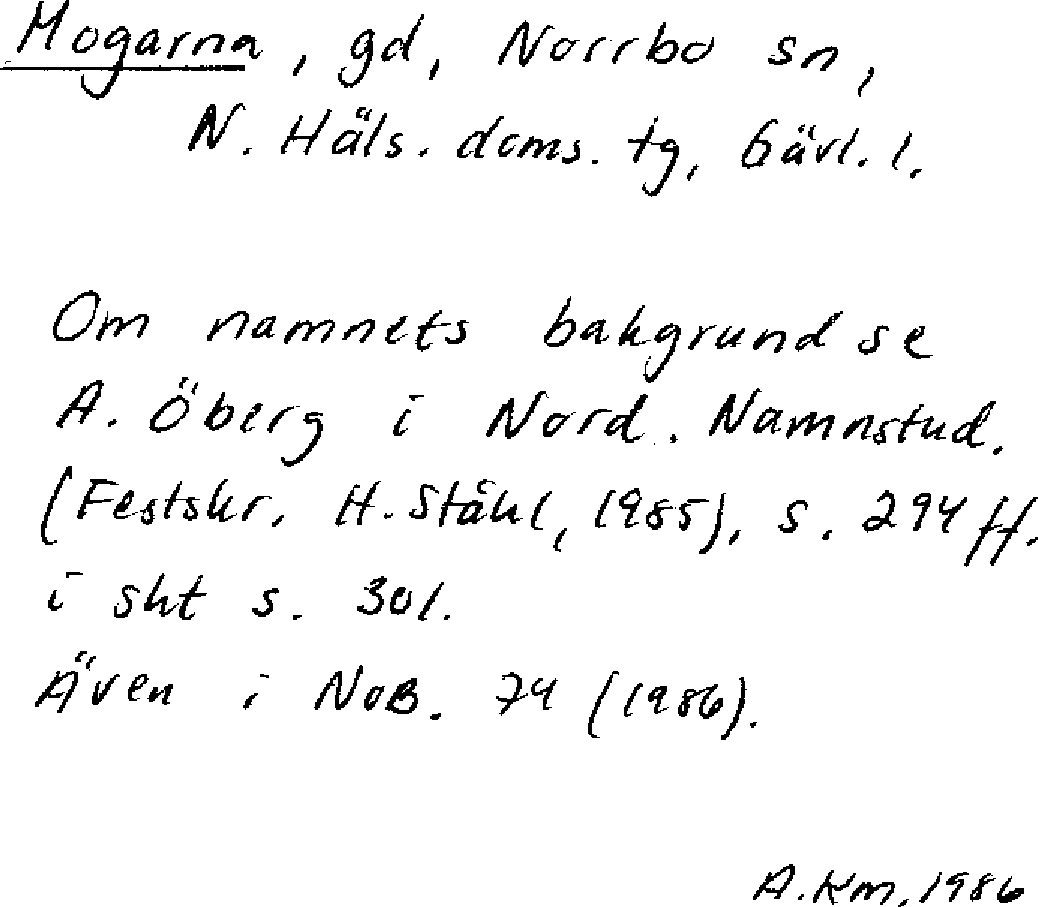 Mogarna, gd, Norrbo sn,
N. Häls. doms. tg, Gävl. l.
Om namnets bakgrund se
A. Öberg i Nord. Namnstud.
(Festskr. H. Ståhl, 1985), s. 294 ff.
i sht s. 301.
Även i NoB. 74 (1986).
A. Km, 1986